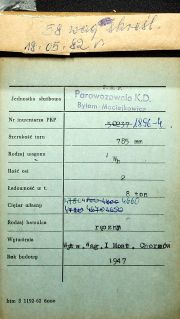 58 wag. skreśl.
18.05.82 r.
P. K. P.
Parowozownia K.D.
Jednostka służbowa Bytom Maciejkowice
Nr inwentarza PKP 1896-4
Szerokość toru 785 mm
Rodzaj wagonu Wb
Ilość osi 2
Ładowność w t. 8 ton
Ciężar własny 4860
4670 4650
Rodzaj hamulca ręczny
Wytw. Wag. i Most. Chorzów
Rok budowy 1947